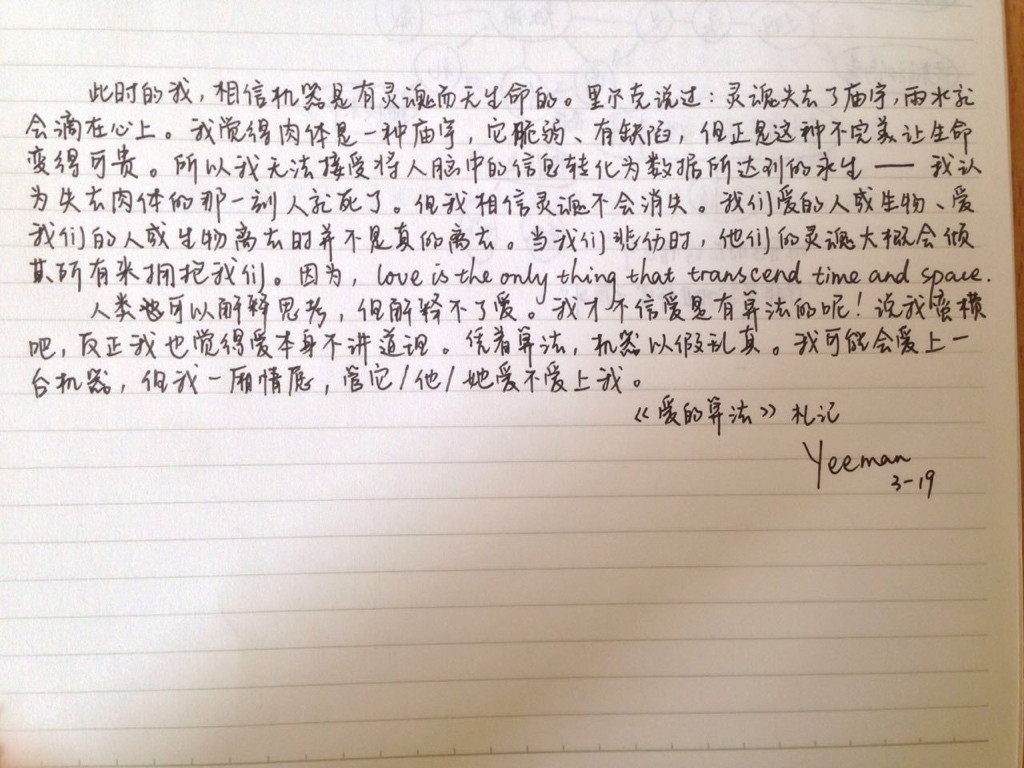 此时的我，相信机器是有灵魂而无生命的。里尔克说过：灵魂失去了庙宇，雨水就
会滴在心上。我觉得肉体是一种庙宇，它脆弱、有缺陷，但正是这种不完美让生命
变得可贵。所以我无法接受将人脑中的信息转化为数据所达到的永生——我认
为失去肉体的那一刻人就死了。但我相信灵魂不会消失。我们爱的人或生物、爱
我们的人或生物离去时并不是真的离去。当我们悲伤时，他们的灵魂大概会倾
其所有来拥抱我们。因为，love is the only thing that transcend time and space.
人类也可以解释思考，但解释不了爱。我才不信爱是有算法的呢！说我蛮横
吧，反正我也觉得爱本身不讲道理。凭着算法，机器以假乱真。我可能会爱上一
台机器，但我一厢情愿，管它/他/她爱不爱上我。
《爱的算法》札记
Yeeman
3-19